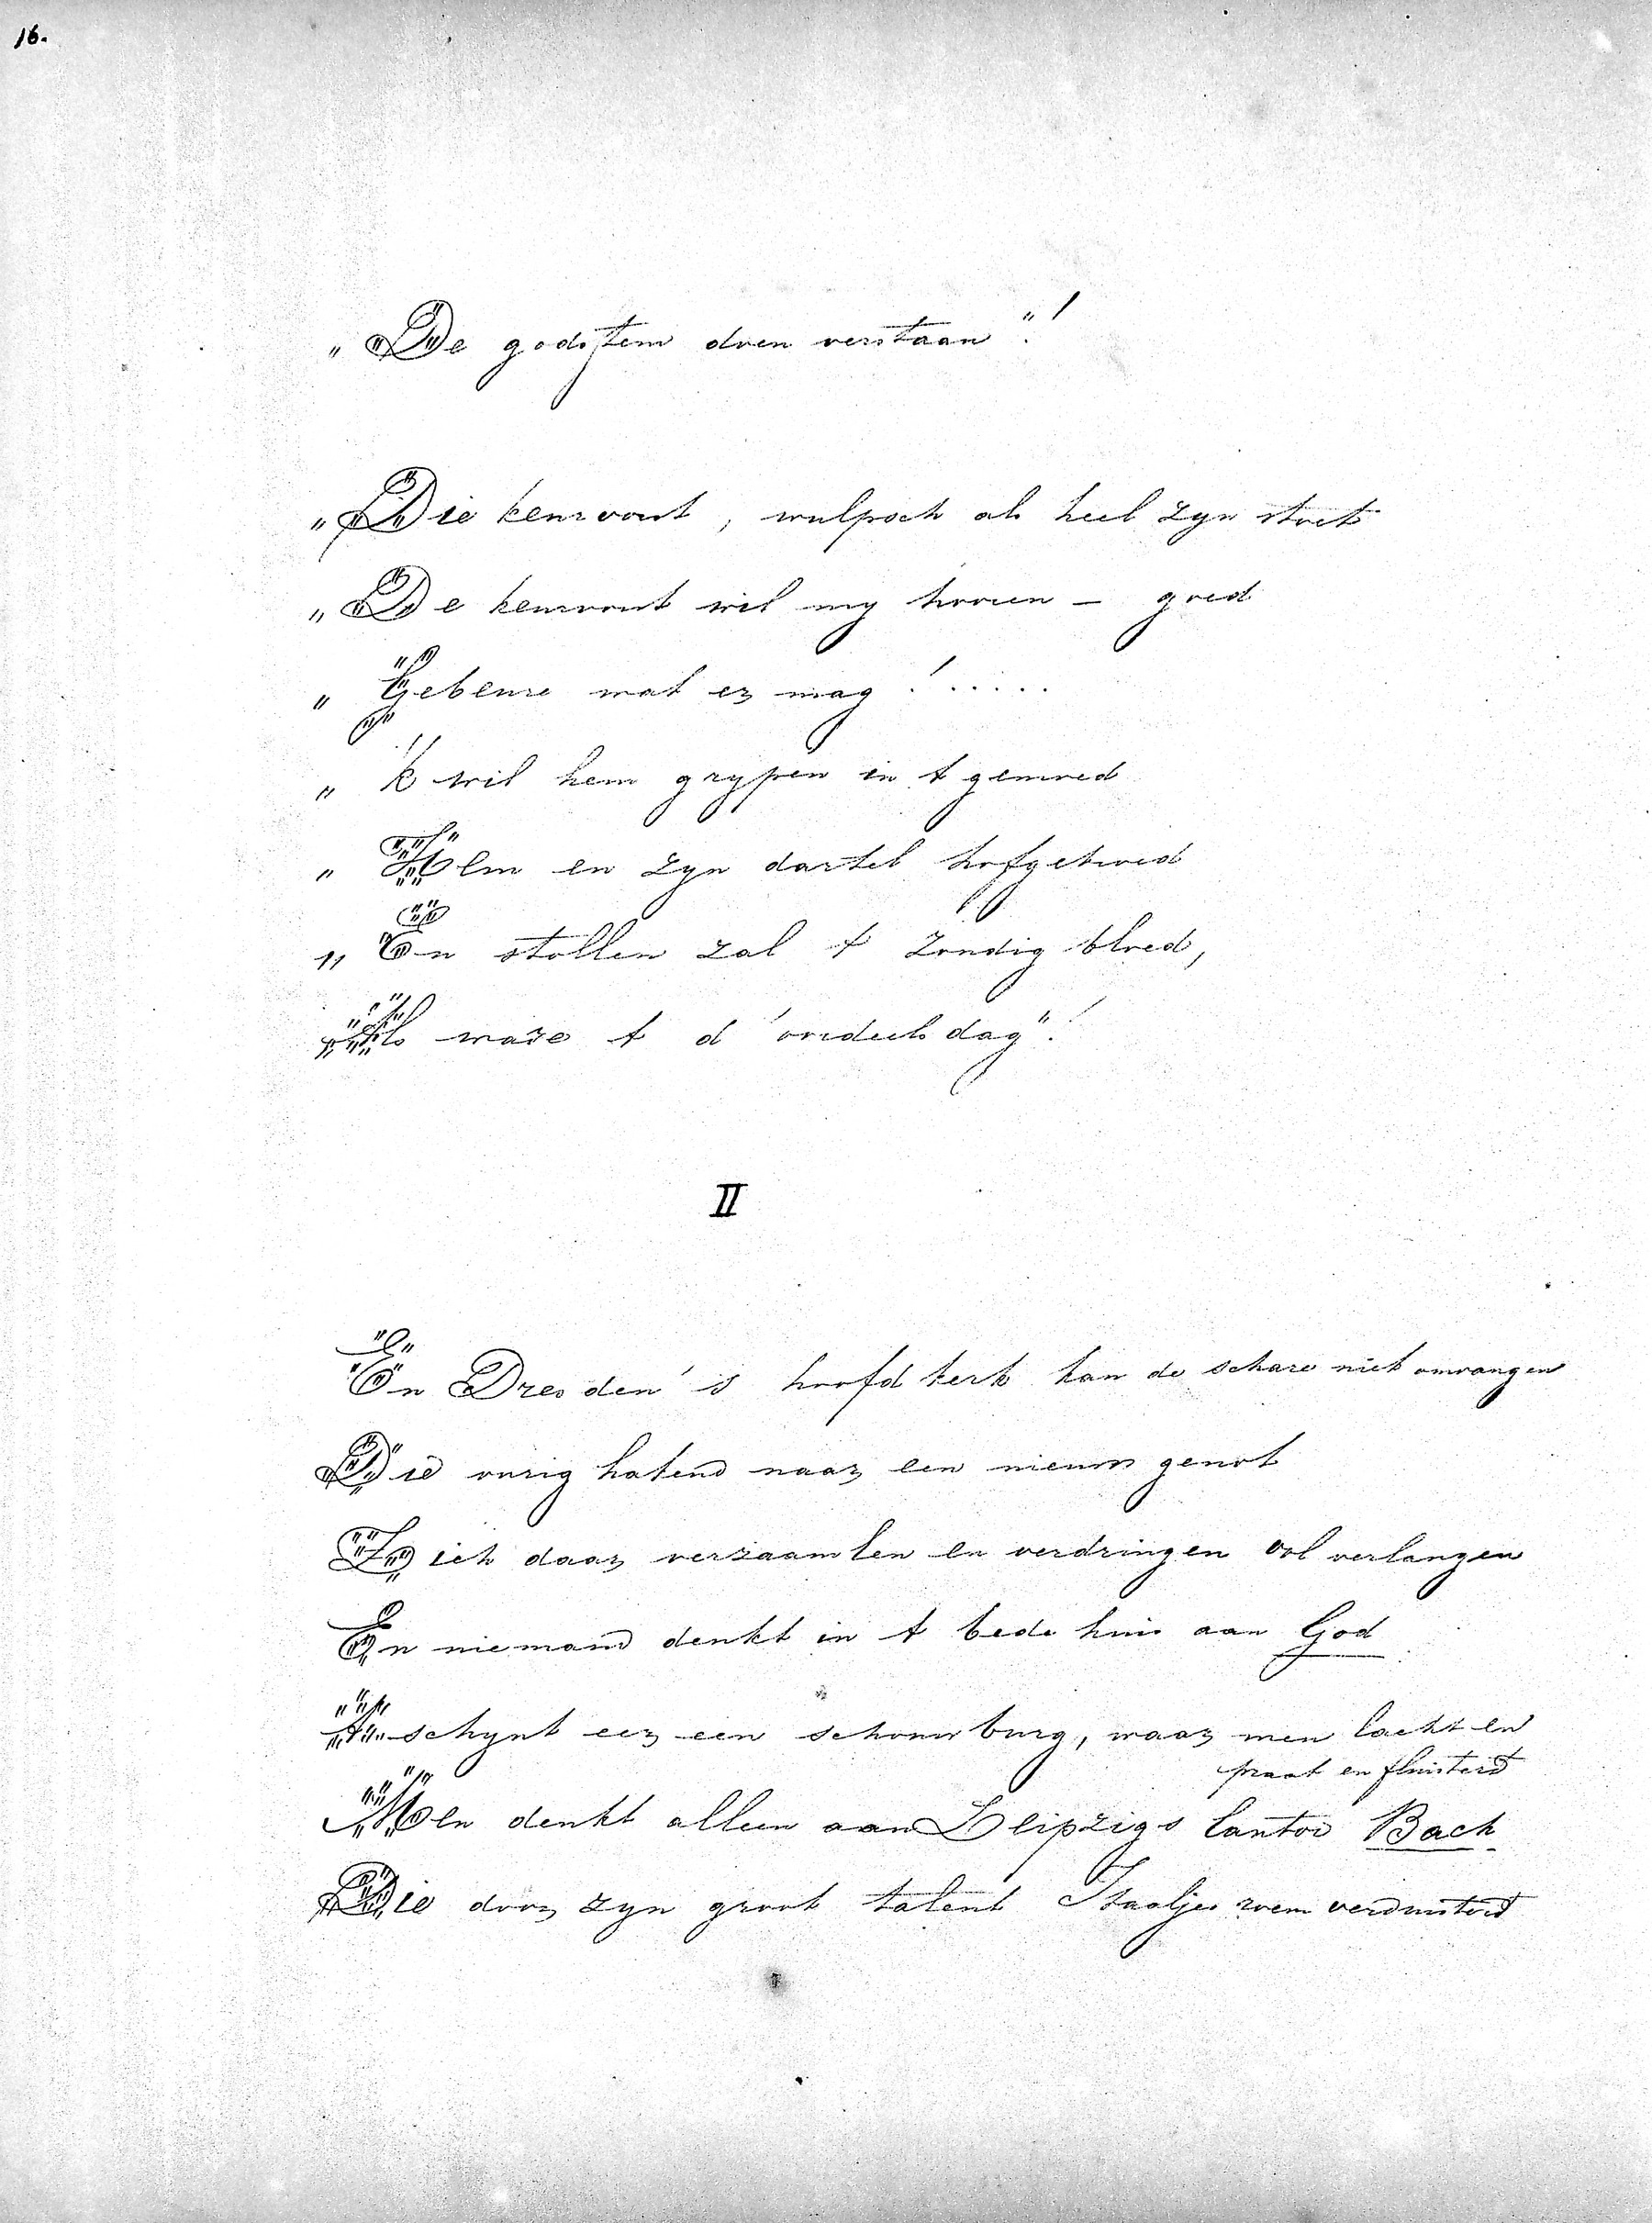 16.
„ De godsstem doen verstaan"!
„ Die keurvorst, wulpsch als heel zyn stoet
„ De keurvorst wil my hooren – goed
„ Gebeure wat er mag! .....
„ 'k wil hem grypen in t gemoed
„ Hem en zyn dartel hofgebroed
„ En stollen zal t zondig bloed,
„ Als ware t d'oordeels dag"!
II
En Dresden's hoofdkerk kan de schare niet omvangen
Die vurig hakend naar een nieuw genot
Zich daar verzaamlen en verdringen vol verlangen
En niemand denkt in t bedehuis aan God
t schynt eer een schouwburg, waar men lacht en
praat en fluisterd
Men denkt alleen aan Leipzigs Cantor Bach
Die door zyn groot talent Itaaljes roem verduisterd